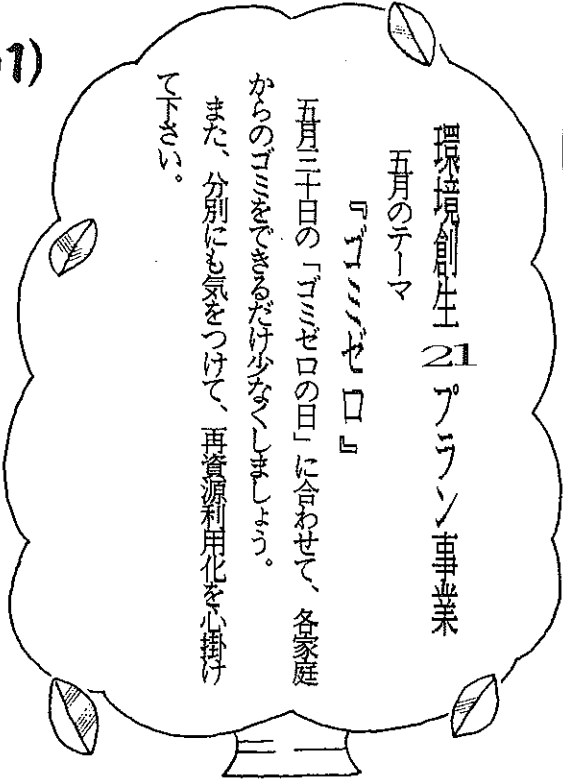 環境創生21プラン事業
五月のテーマ
『ゴミゼロ』
五月三十日の「ゴミゼロの日」に合わせて、各家庭
からのゴミをできるだけ少なくしましょう。
また、分別にも気をつけて、再資源利用化を心掛け
て下さい。
1)